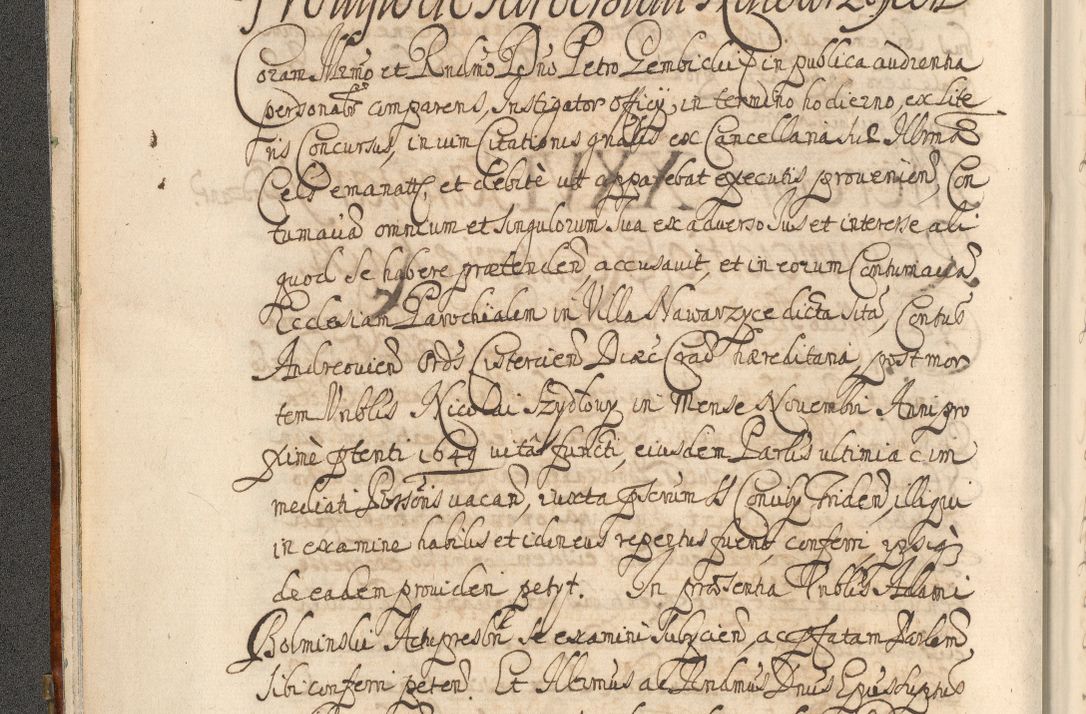 Coram Illrmo et Rndmo Dno Petro Gembicki in publica audientia
personalr comparens, Instigator officij, in termino hodierno, ex lite
ris Concursus, in vim Citationis gnalis ex Cancellaria Suæ Illrmæ
Cels emanatt, et debitè ut apparebat executis provenien Con
tumatia omnium et singulorum sua ex adverso Jus et interesse ali
quod se habere prætenden, accusavit, et in eorum Contumatia
Ecclesiam Parochialem in Villa Nawarzyce dicta sita, Contus
Andreovien Ords Cistercien Diæc Crac hæreditaria, post mor
tem Vnblis Nicolai Szydlowy in Mense Novembri Anni pro
ximè ptenti 1649 vita functi, eiusdem Parlis ultimi ac im
mediati Possoris vacan, iuxta pscrium SS Concily Triden, illi qui
in examine habilis et idoneus repertus fuerit, conferri, ipsiq
de eadem provideri petyt. In præsentia Vnblis Adami
Bolminski Archipresbri se examini subijcien, ac pfatam Parlem
sibi conferri peten. Et Illrmus ac Rndmus Dnus Epus supius